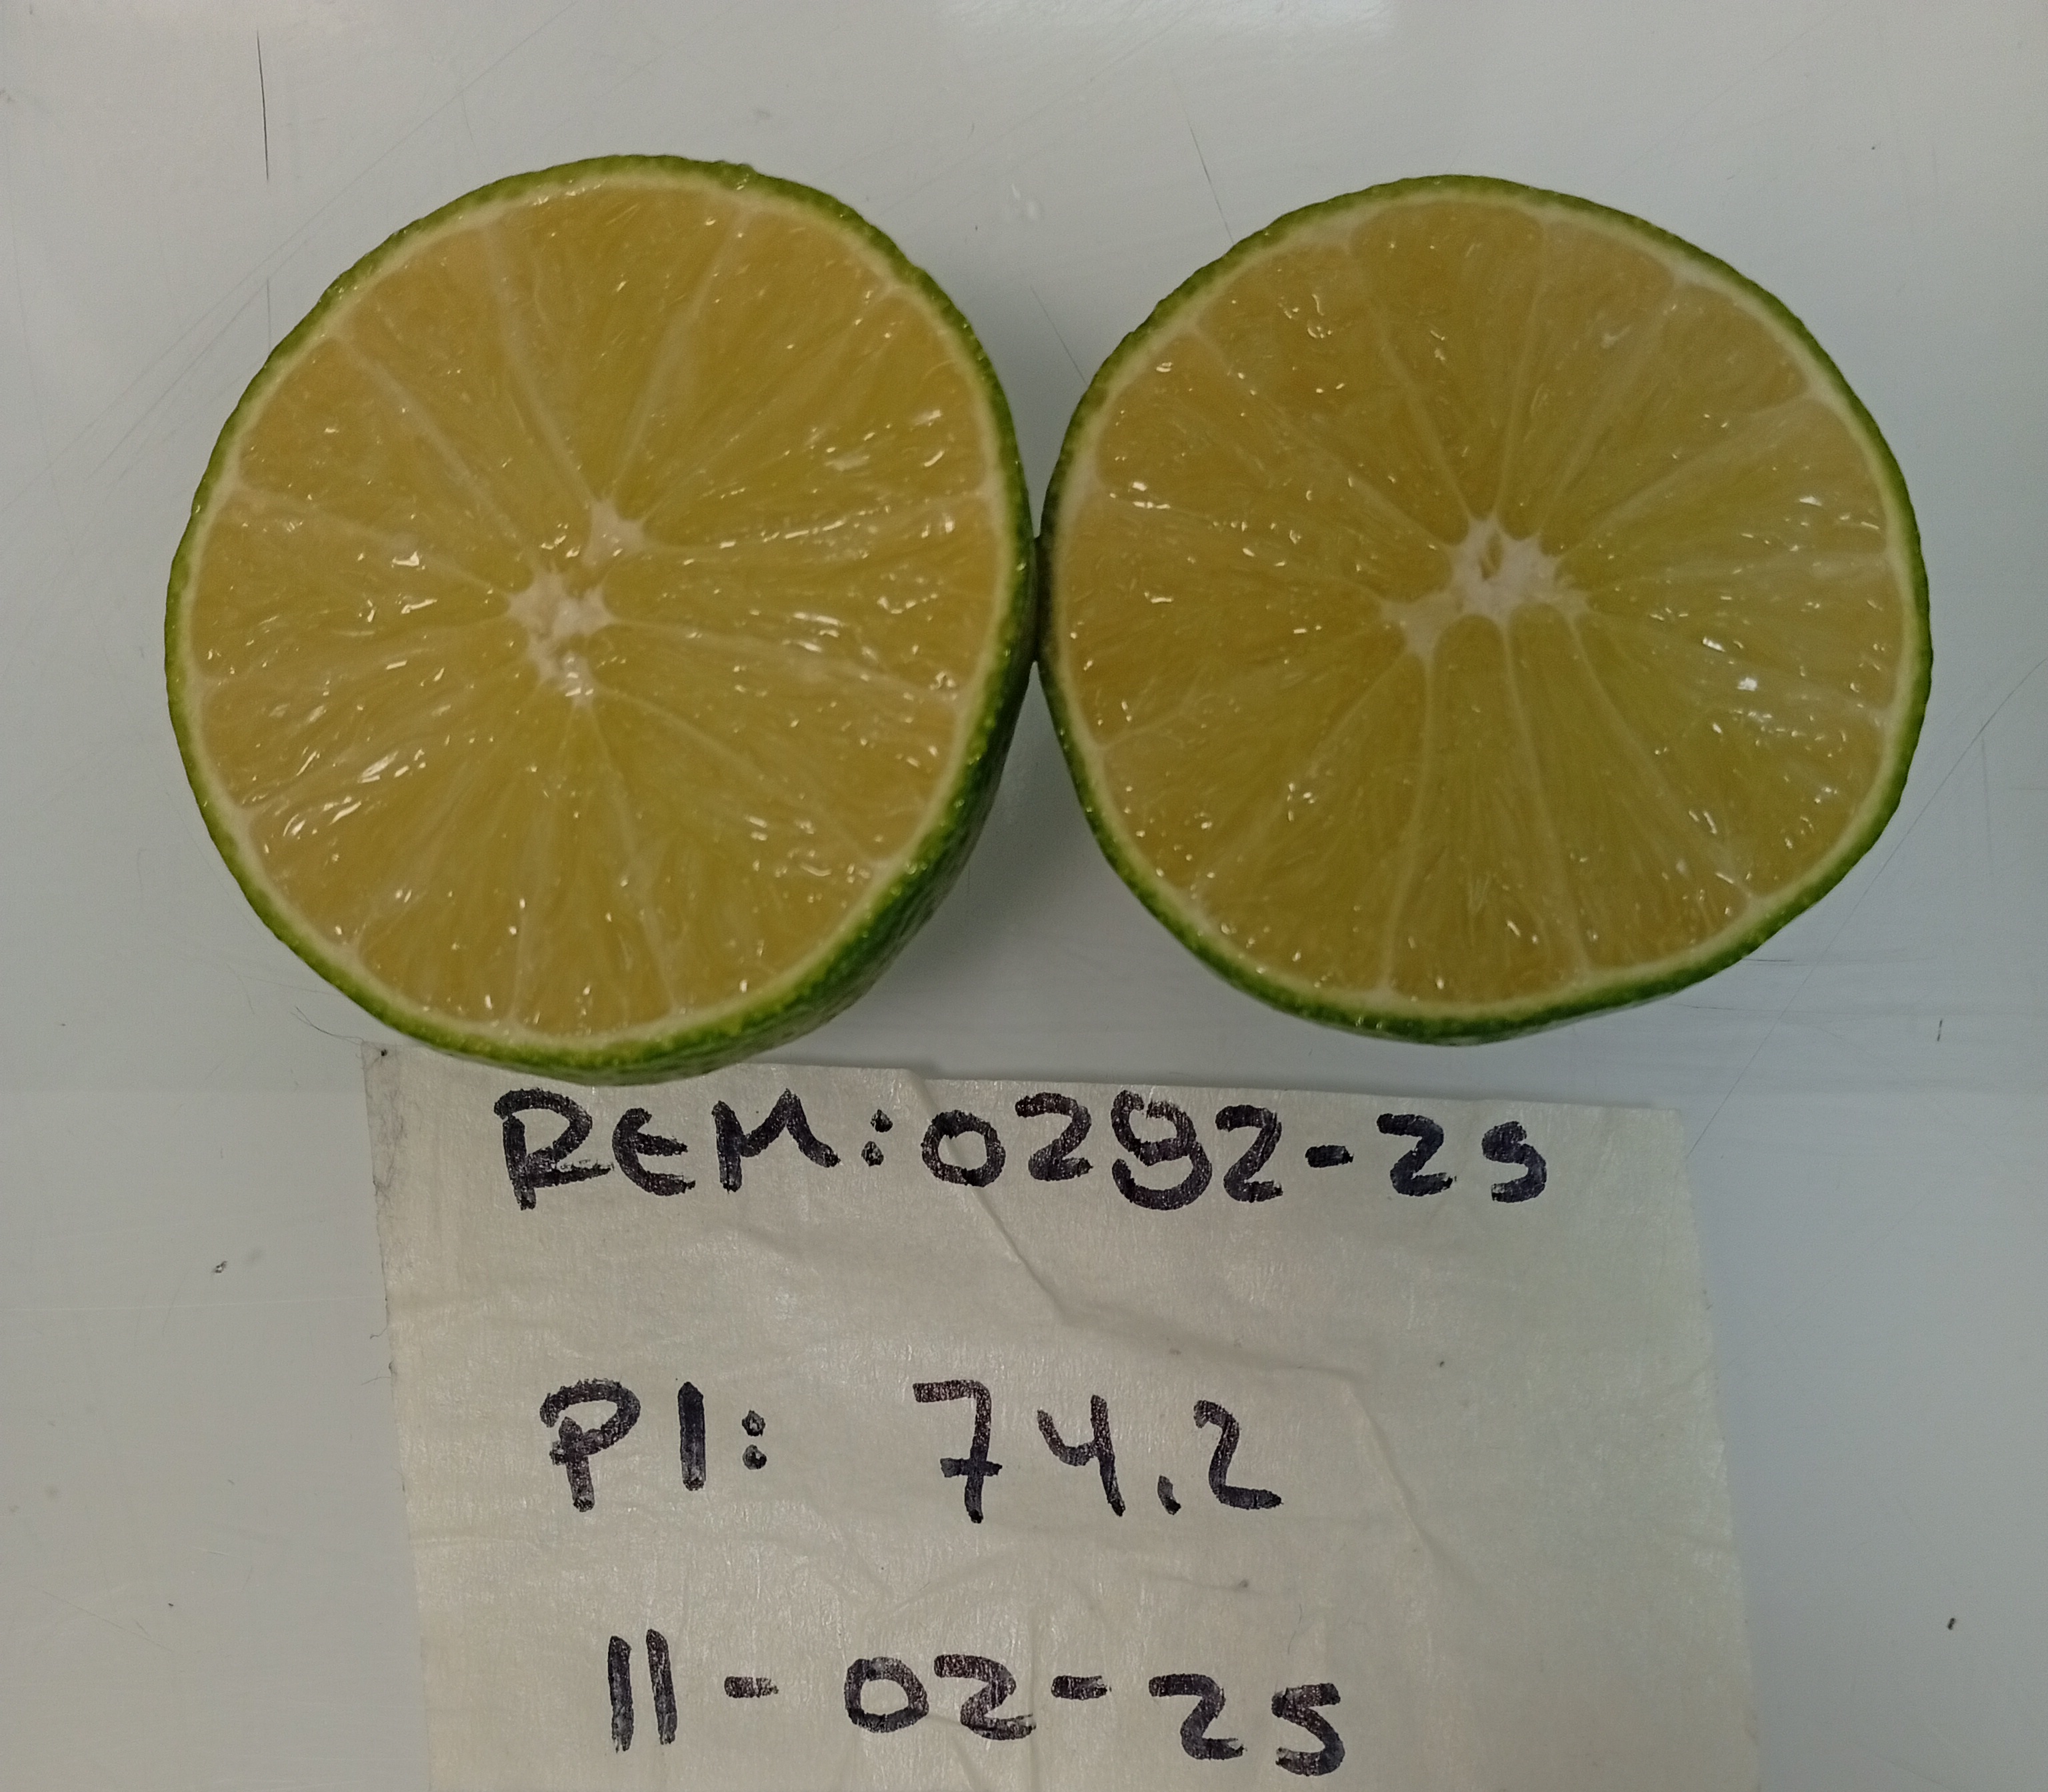 REM:0292-25
PI: 74.2
11-02-25